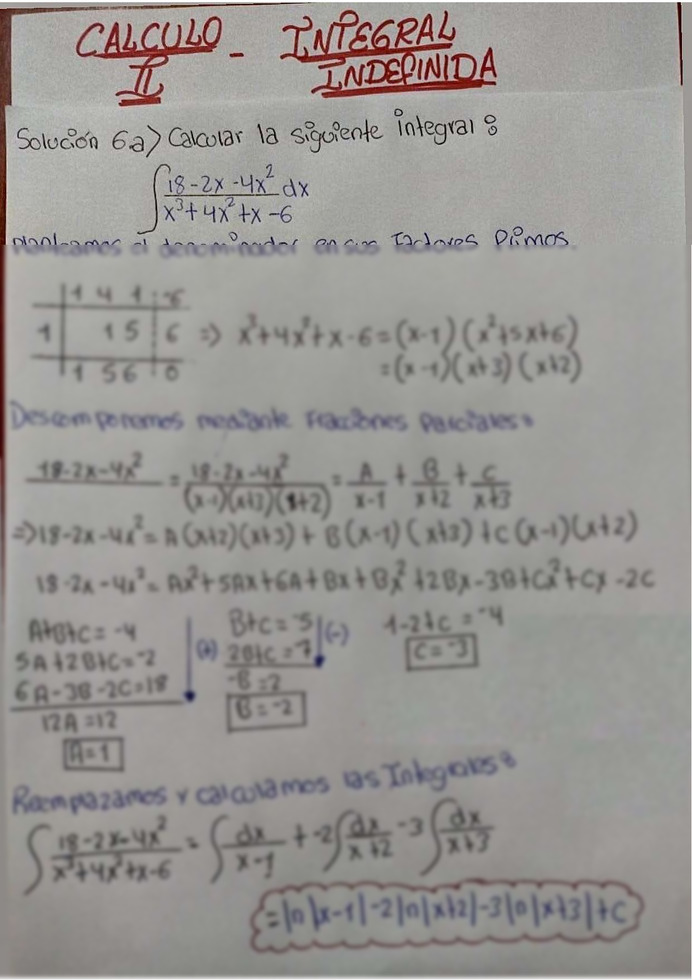 CALCULO II - INTEGRAL INDEFINIDA
Solución 6a) Calcular la siguiente integral:
∫ (18-2x-4x²)/(x³+4x²+x-6) dx
planteamos el denominador en sus factores primos.
| 1 4 1 | -6
1 | 1 5 | 6
| 1 5 6 | 0
=> x³+4x²+x-6=(x-1)(x²+5x+6)
=(x-1)(x+3)(x+2)
Descomponemos mediante fracciones parciales:
18-2x-4x² = (18-2x-4x²)/((x-1)(x+3)(x+2)) = A/(x-1) + B/(x+2) + C/(x+3)
=>18-2x-4x²=A(x+2)(x+3)+B(x-1)(x+3)+C(x-1)(x+2)
18-2x-4x²=Ax²+5Ax+6A+Bx+Bx²+2Bx-3B+Cx²+Cx-2C
A+B+C=-4
5A+2B+C=-2
6A-3B-2C=18
12A=12
A=1
(+)
B+C=-5
2B+C=-7
-B=2
B=-2
(-)
1-2+C=-4
C=-3
Reemplazamos y calculamos las Integrales:
∫ (18-2x-4x²)/(x³+4x²+x-6) = ∫ dx/(x-1) + -2∫ dx/(x+2) -3∫ dx/(x+3)
=ln|x-1|-2|n|x+2|-3|n|x+3|+C